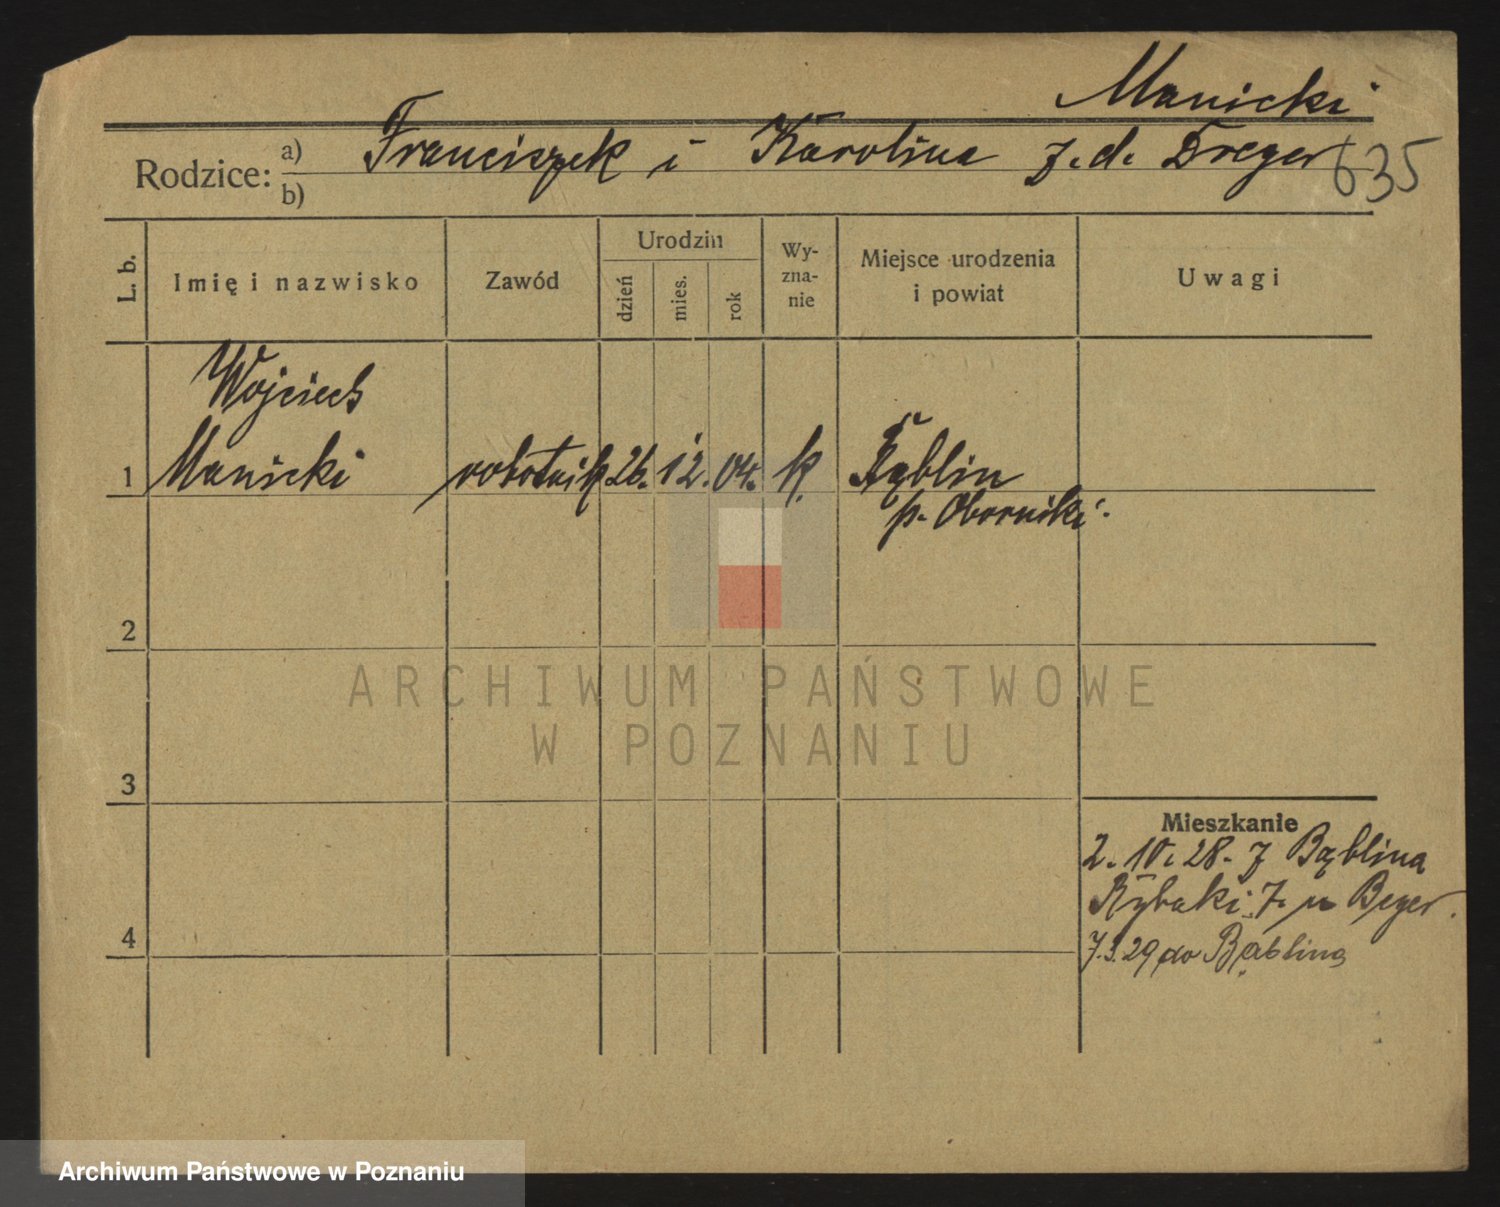 Manicki
Rodzice: a) Franciszek i Karolina z.d. Dreger 635
b)
L. b. Imię i nazwisko Zawód Urodzin dzień mies. rok Wyznanie Miejsce urodzenia i powiat Uwagi
Wojciech
1 Manicki robotnik 26. 12. 04. k. Bąblin
p. Oborniki.
2
ARCHIWUM PAŃSTWOWE
W POZNANIU
3
Mieszkanie
2. 10. 28. z Bąblina
Rybaki 7. u Beyer.
4 7.3.29 do Bąblina
Archiwum Państwowe w Poznaniu